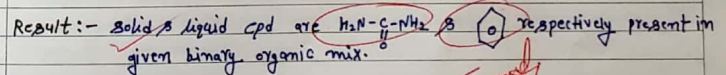 Result:- solid & liquid cpd are H₂N-C-NH₂ & respectively present in
O
given binary organic mix.